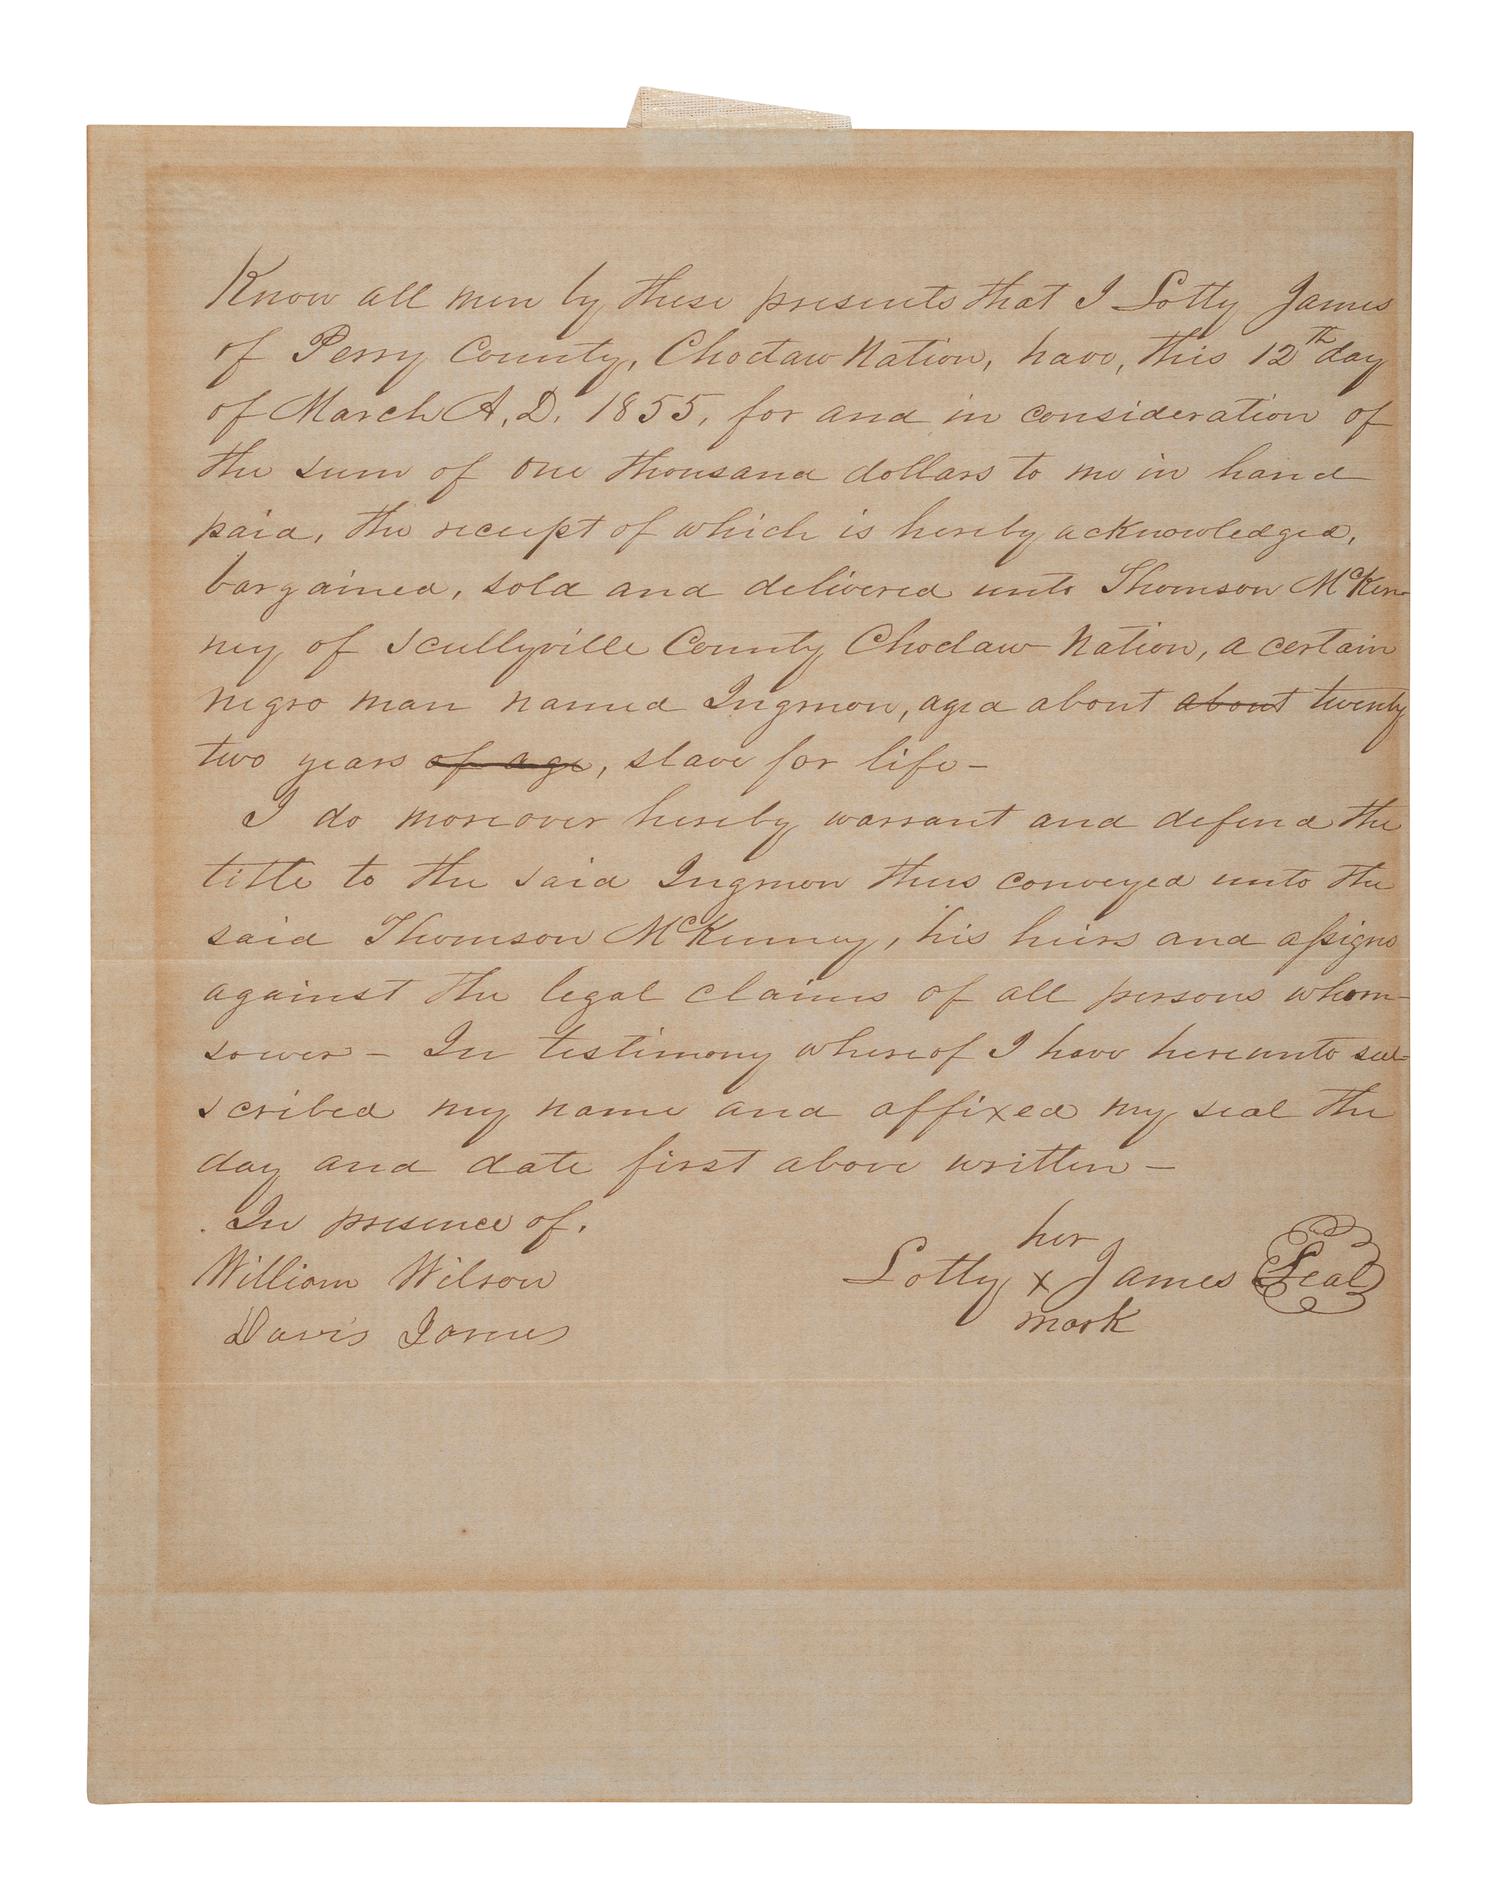 Know all men by these presents that I Lotty James
of Perry County, Choctaw Nation, have, this 12th day
of March A.D. 1855, for and in consideration of
the sum of one thousand dollars to me in hand
paid, the receipt of which is hereby acknowledged,
bargained, sold and delivered unto Thomson McKen-
ney of Scullyville County Choctaw Nation, a certain
negro man named Ingmon, aged about about twenty
two years of age, slave for life -
I do moreover hereby warrant and defend the
title to the said Ingmon thus conveyed unto the
said Thomson McKenney, his heirs and assigns
against the legal claims of all persons whom-
soever - In testimony whereof I have hereunto sub-
scribed my name and affixed my seal the
day and date first above written -
In presence of.
her
William Wilson Lotty x James Seal
mark
Davis James